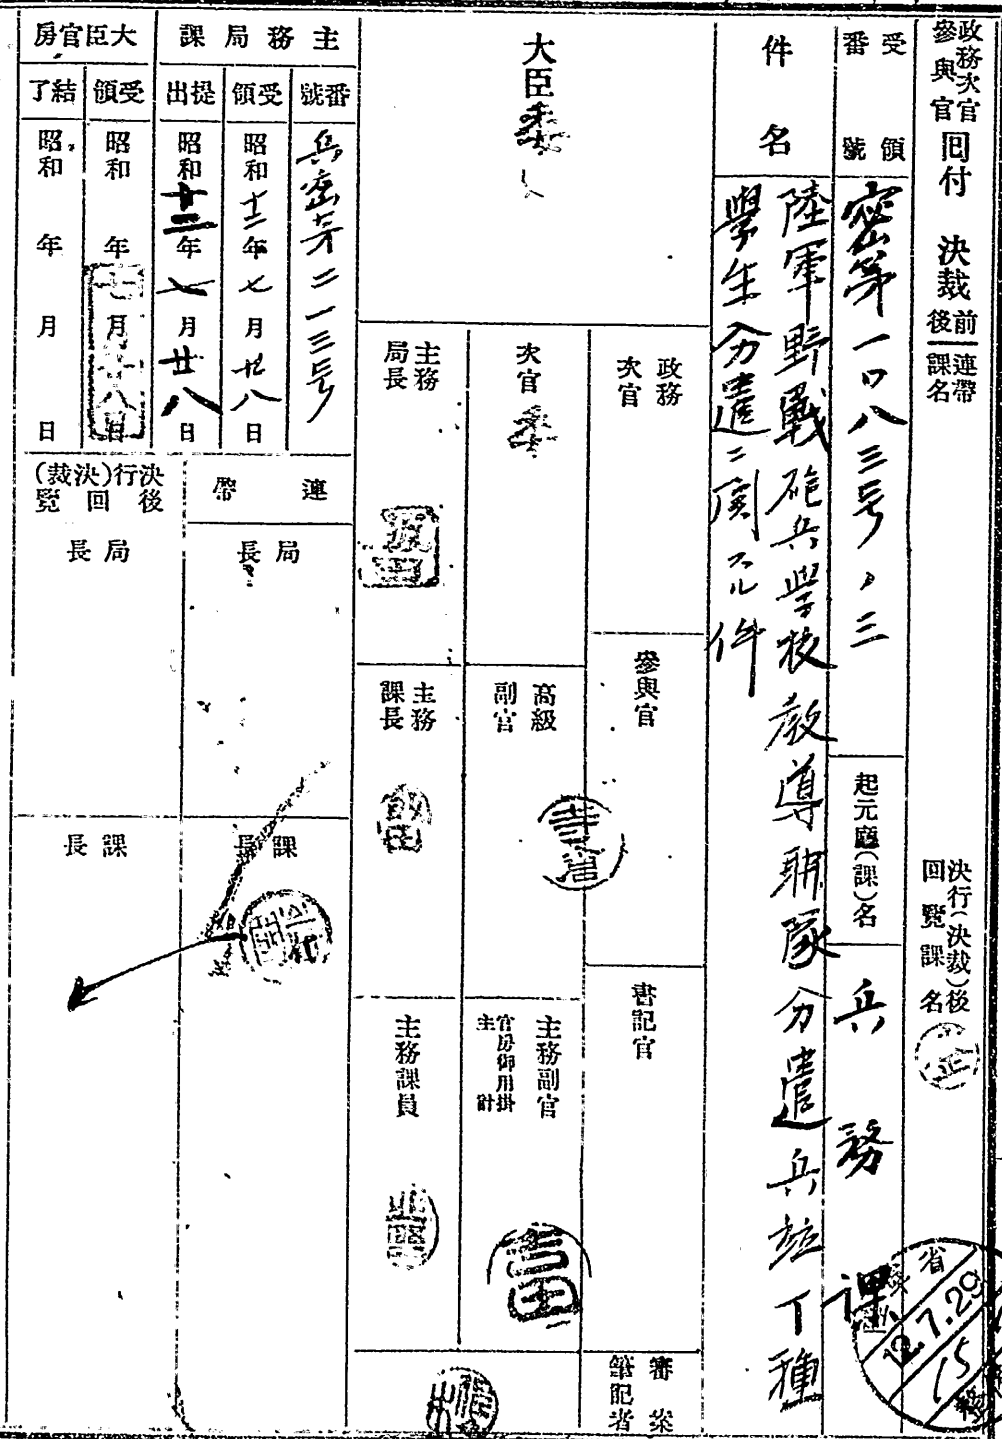 政務次官
參與官
回付
決裁
前
後
連帶
課名
決行(決裁)後
回覽課名
企
受領
番號
密第一〇八三号ノ三
起元廳(課)名
兵務課
件名
陸軍野戰砲兵學校教導聯隊分遣兵並丁種
學生分遣ニ関スル件
省
12.7.29
15
大臣
委
政務
次官
參與官
書記官
審案
筆記者
次官
委
高級
副官
主務副官
官房御用掛
主計
主務
局長
主務
課長
主務課員
主務局課
番號
兵密第二一三号
受領
昭和十二年七月廿八日
提出
昭和十二年七月廿八日
大臣官房
受領
昭和 年七月廿八日
結了
昭和 年 月 日
連帶
局長
課長
決行(決裁)
後回覽
局長
課長